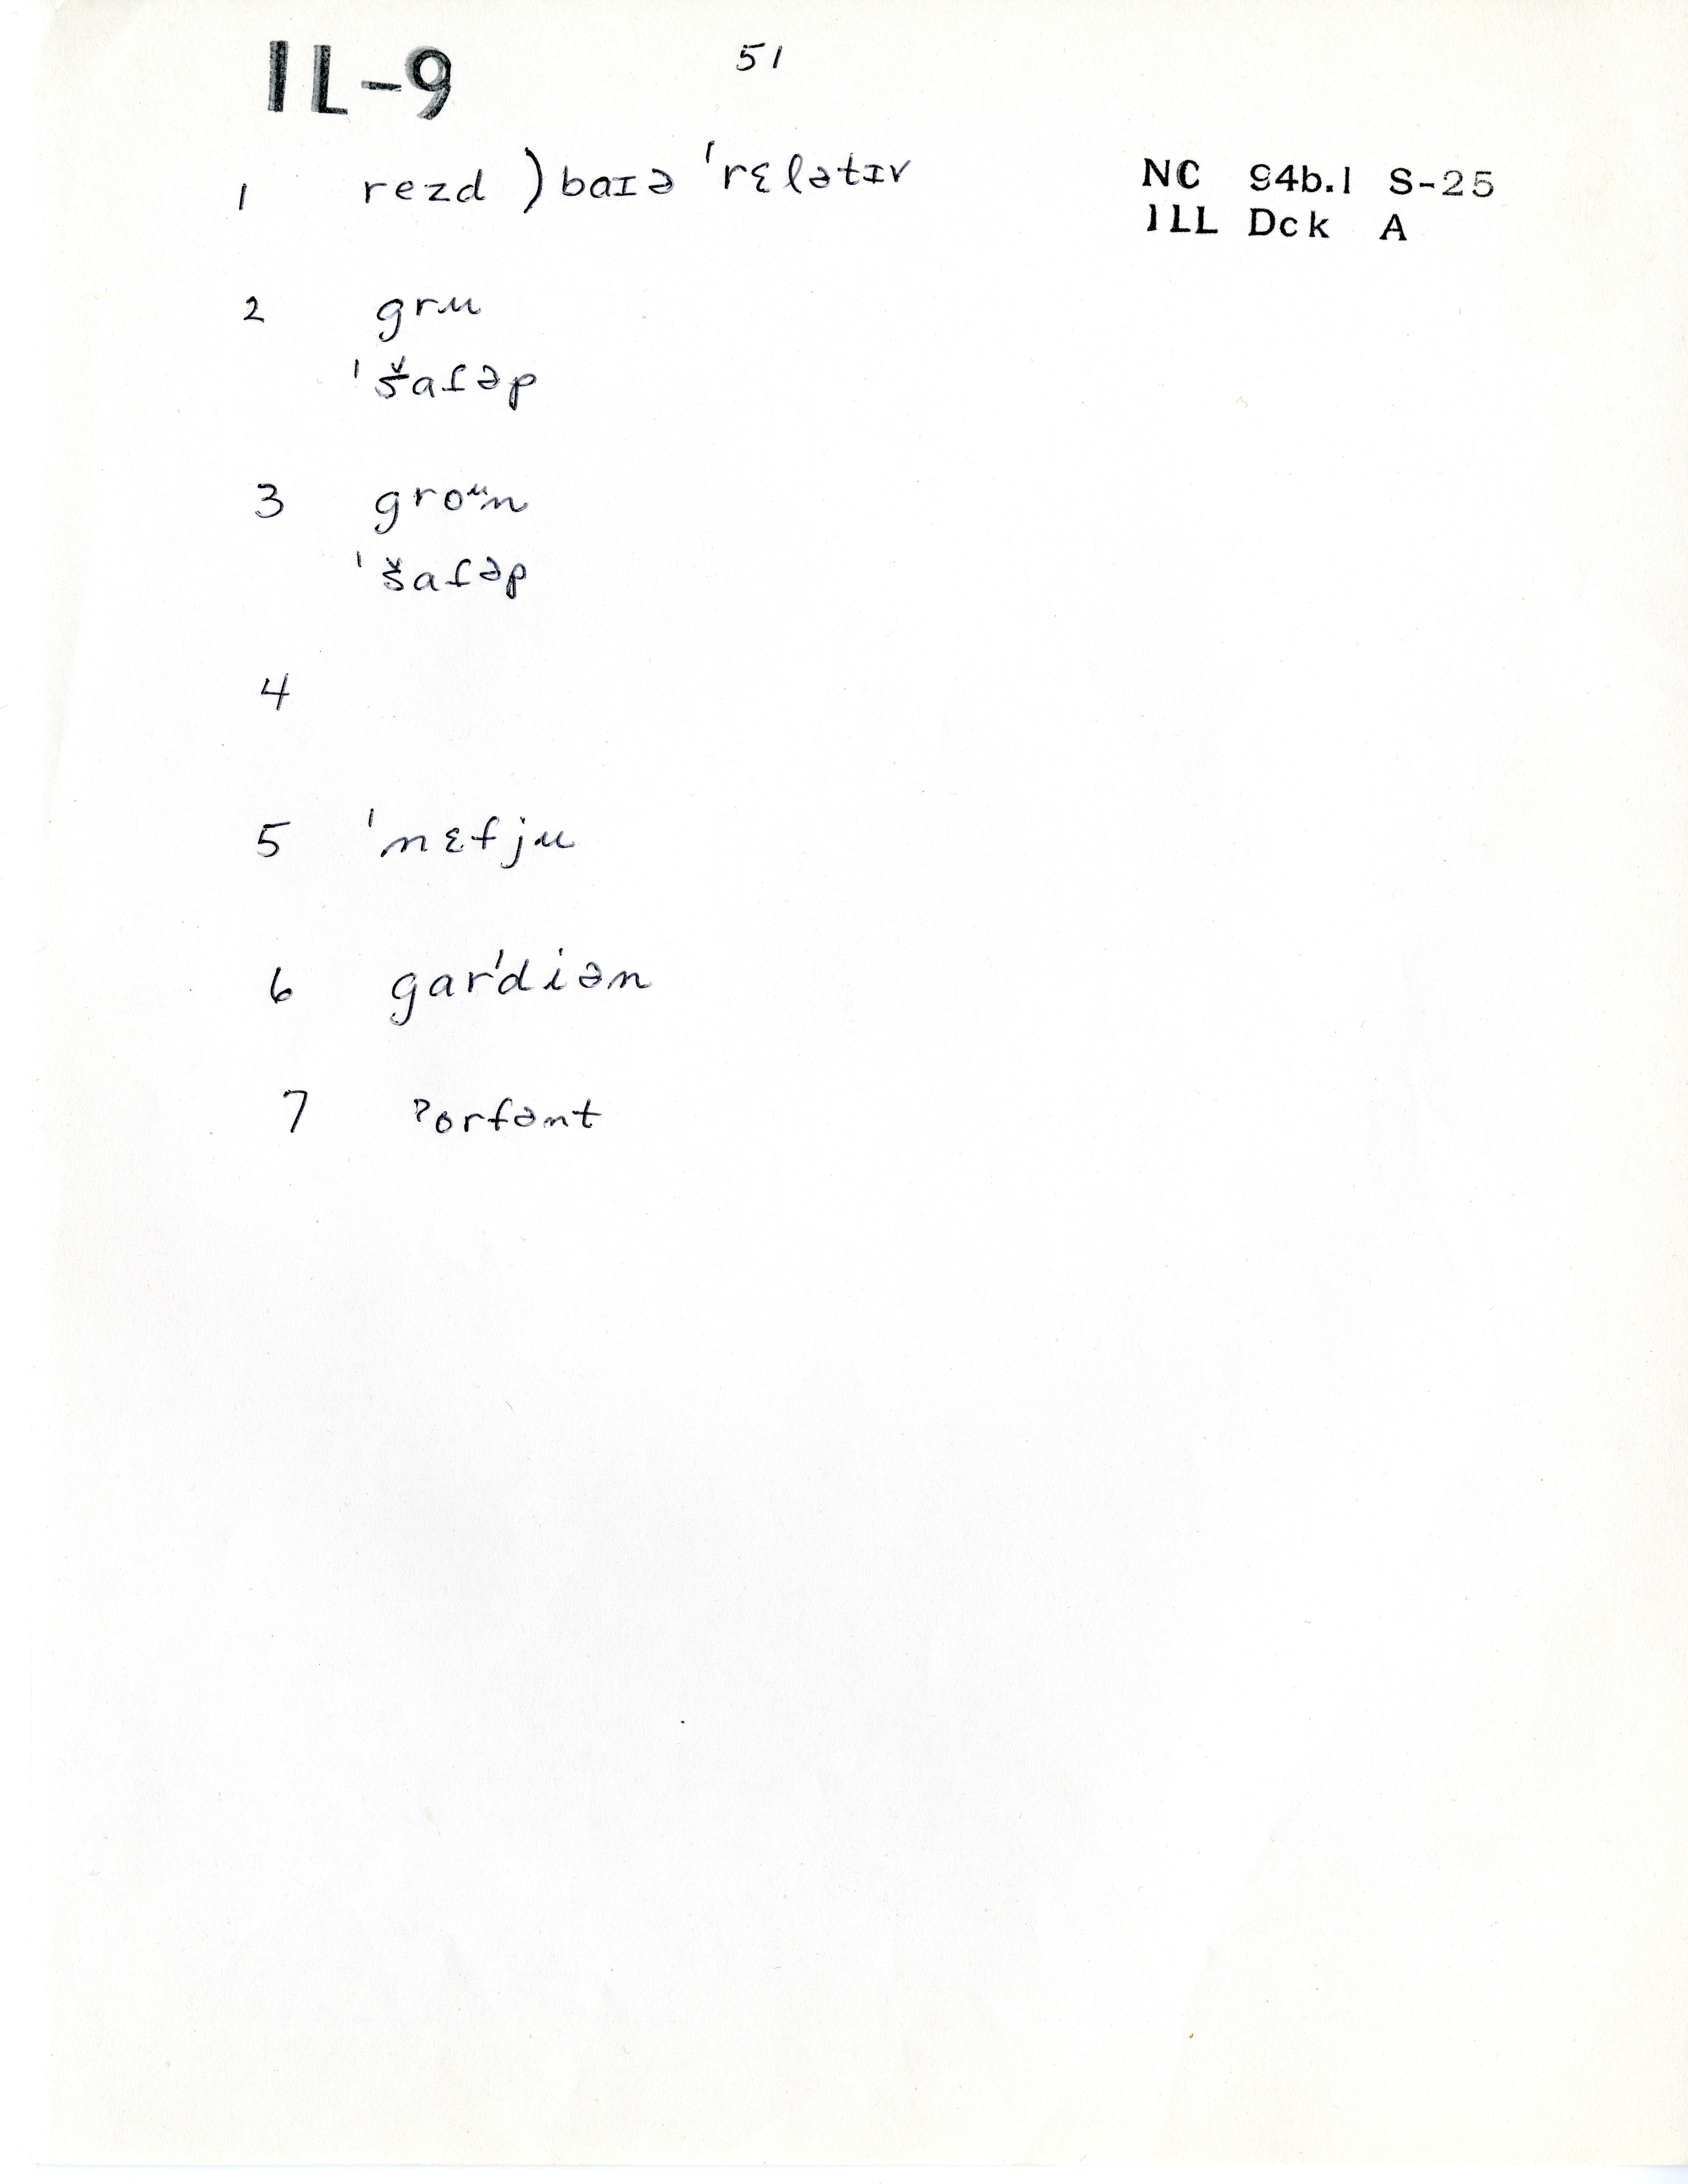 IL-9
51
1 rezd ) baɪə ˈrɛlətɪv
NC 94b.1 S-25
ILL Dck A
2 gru
ˈšafəp
3 groᵘn
ˈšafəp
4
5 ˈnɛfju
6 garˈdiən
7 ʔorfənt